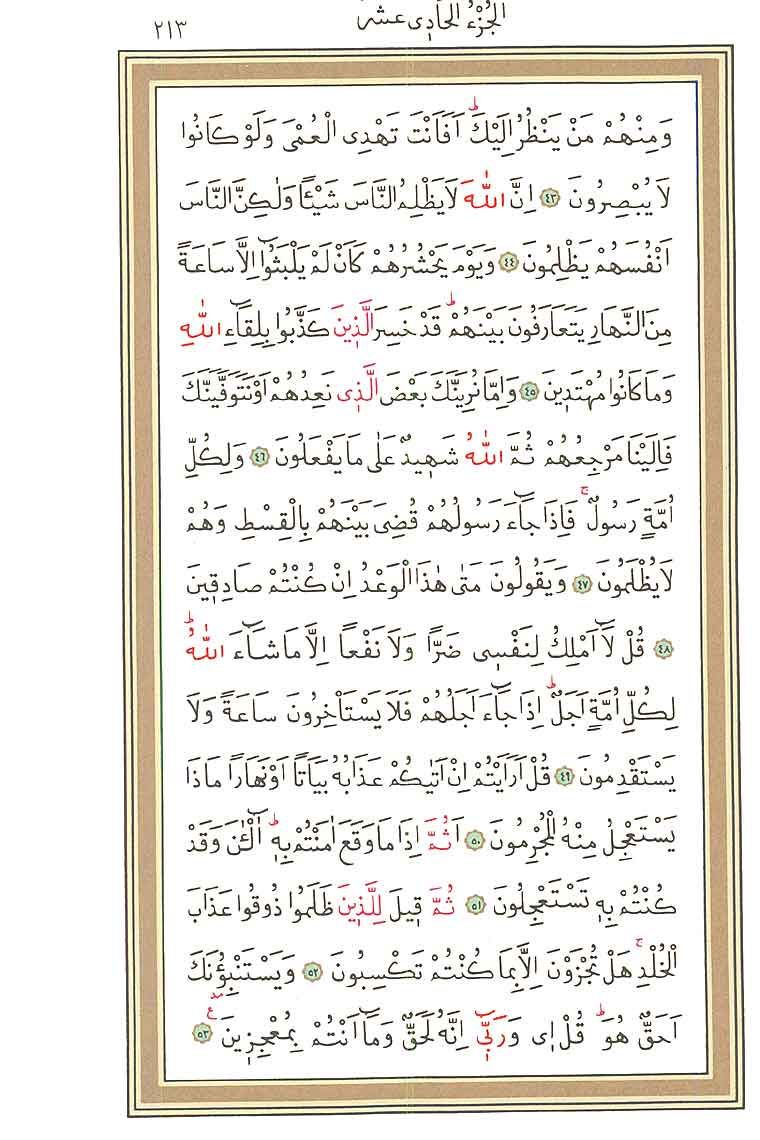 الجُزْءُ الحَادِى عَشَرَ
٢١٣
وَمِنْهُمْ مَنْ يَنْظُرُ اِلَيْكَۜ اَفَاَنْتَ تَهْدِى الْعُمْىَ وَلَوْ كَانُوا
لَا يُبْصِرُونَ ﴿٤٣﴾ اِنَّ اللّٰهَ لَا يَظْلِمُ النَّاسَ شَيْـًٔا وَلٰكِنَّ النَّاسَ
اَنْفُسَهُمْ يَظْلِمُونَ ﴿٤٤﴾ وَيَوْمَ يَحْشُرُهُمْ كَاَنْ لَمْ يَلْبَثُٓوا اِلَّا سَاعَةً
مِنَ النَّهَارِ يَتَعَارَفُونَ بَيْنَهُمْۜ قَدْ خَسِرَ الَّذ۪ينَ كَذَّبُوا بِلِقَٓاءِ اللّٰهِ
وَمَا كَانُوا مُهْتَد۪ينَ ﴿٤٥﴾ وَاِمَّا نُرِيَنَّكَ بَعْضَ الَّذ۪ى نَعِدُهُمْ اَوْ نَتَوَفَّيَنَّكَ
فَاِلَيْنَا مَرْجِعُهُمْ ثُمَّ اللّٰهُ شَه۪يدٌ عَلٰى مَا يَفْعَلُونَ ﴿٤٦﴾ وَلِكُلِّ
اُمَّةٍ رَسُولٌۚ فَاِذَا جَٓاءَ رَسُولُهُمْ قُضِىَ بَيْنَهُمْ بِالْقِسْطِ وَهُمْ
لَا يُظْلَمُونَ ﴿٤٧﴾ وَيَقُولُونَ مَتٰى هٰذَا الْوَعْدُ اِنْ كُنْتُمْ صَادِق۪ينَ
﴿٤٨﴾ قُلْ لَٓا اَمْلِكُ لِنَفْس۪ى ضَرًّا وَلَا نَفْعًا اِلَّا مَا شَٓاءَ اللّٰهُۜ
لِكُلِّ اُمَّةٍ اَجَلٌۜ اِذَا جَٓاءَ اَجَلُهُمْ فَلَا يَسْتَأْخِرُونَ سَاعَةً وَلَا
يَسْتَقْدِمُونَ ﴿٤٩﴾ قُلْ اَرَاَيْتُمْ اِنْ اَتٰيكُمْ عَذَابُهُ بَيَاتًا اَوْ نَهَارًا مَاذَا
يَسْتَعْجِلُ مِنْهُ الْمُجْرِمُونَ ﴿٥٠﴾ اَثُمَّ اِذَا مَا وَقَعَ اٰمَنْتُمْ بِه۪ۜ آٰلْـٰٔنَ وَقَدْ
كُنْتُمْ بِه۪ تَسْتَعْجِلُونَ ﴿٥١﴾ ثُمَّ ق۪يلَ لِلَّذ۪ينَ ظَلَمُوا ذُوقُوا عَذَابَ
الْخُلْدِۚ هَلْ تُجْزَوْنَ اِلَّا بِمَا كُنْتُمْ تَكْسِبُونَ ﴿٥٢﴾ وَيَسْتَنْبِؤُنَكَ
اَحَقٌّ هُوَۜ قُلْ ا۪ى وَرَبّ۪ٓى اِنَّهُ لَحَقٌّ وَمَٓا اَنْتُمْ بِمُعْجِز۪ينَ ﴿٥٣﴾